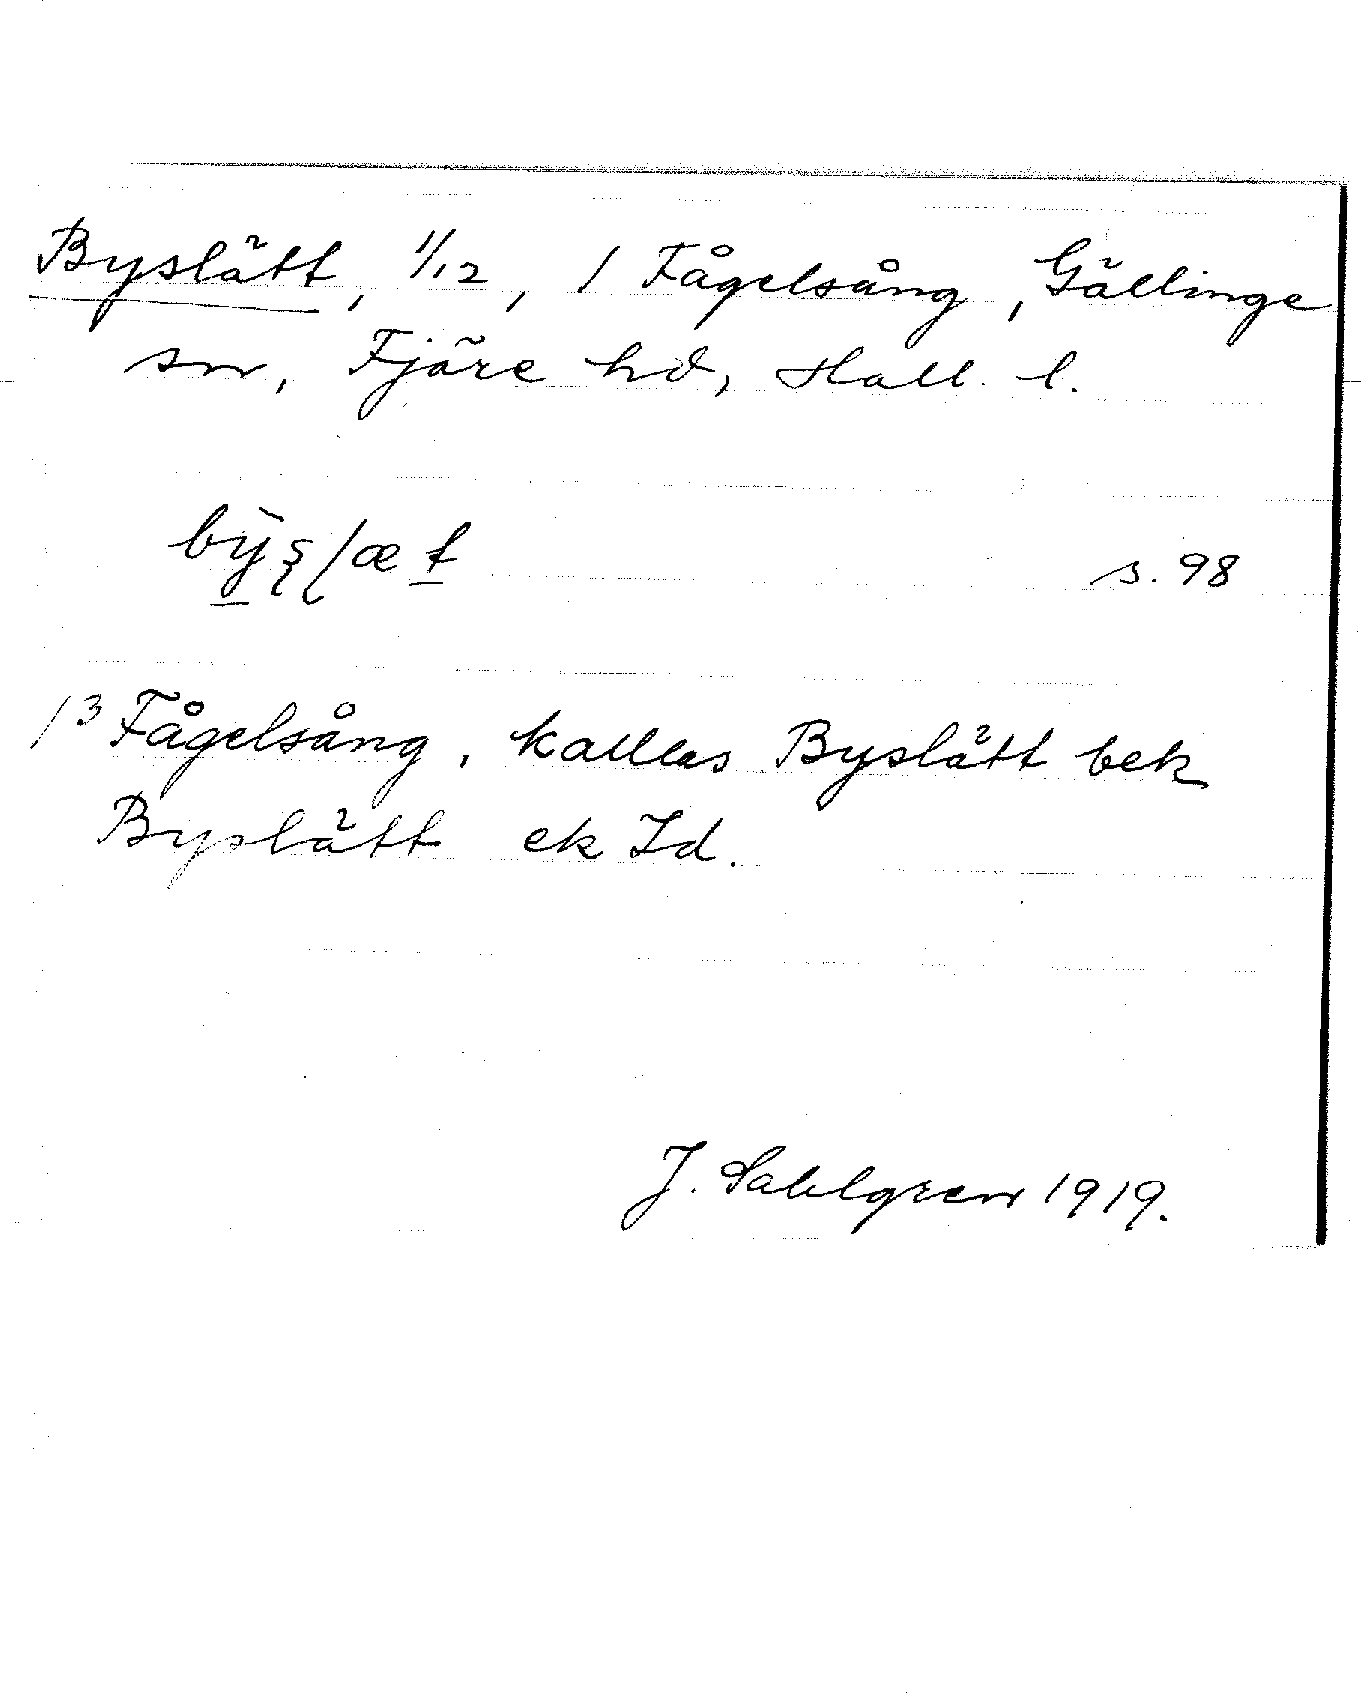 Byslätt, 1/12, / Fågelsång, Gällinge
sn, Fjäre hd, Hall. l.
s. 98
/3 Fågelsång, kallas Byslätt bek
Byslätt ek Id.
J. Sahlgren 1919.